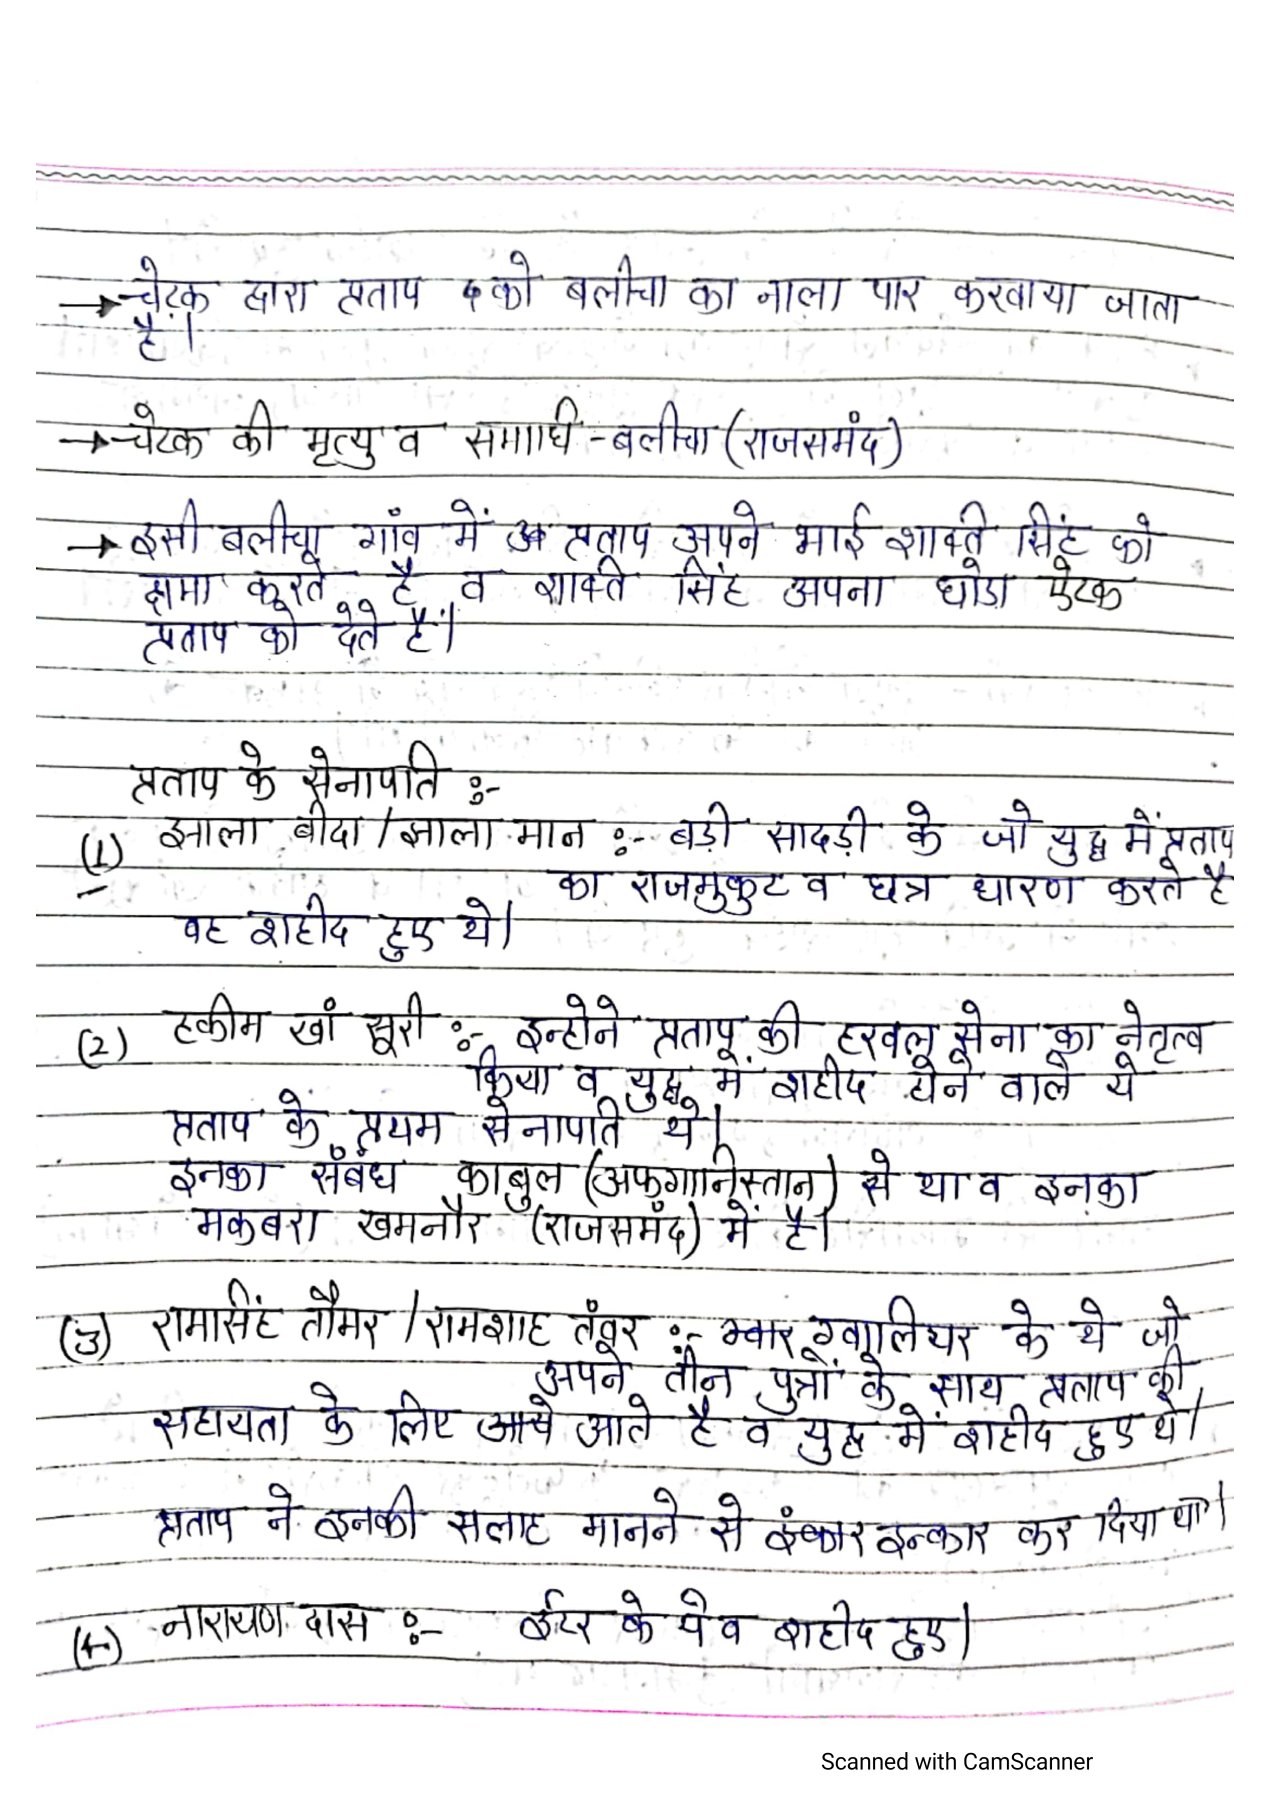 → चेटक द्वारा प्रताप को बलीचा का नाला पार करवाया जाता
है।
→ चेटक की मृत्यु व समाधि - बलीचा (राजसमंद)
→ इसी बलीचा गाँव में प्रताप अपने भाई शाक्ति सिंह को
क्षमा करते है व शाक्ति सिंह अपना घोडा ऐटक
प्रताप को देते है।
प्रताप के सेनापति :-
(1) झाला बीदा / झाला मान :- बड़ी सादड़ी के जो युद्ध में प्रताप
का राजमुकुट व छत्र धारण करते है
वह शहीद हुए थे।
(2) हकीम खां सूरी :- इन्होने प्रताप की हरवल सेना का नेतृत्व
किया व युद्ध में शहीद होने वाले ये
प्रताप के प्रथम सेनापति थे।
इनका संबंध काबुल (अफगानिस्तान) से था व इनका
मकबरा खमनौर (राजसमंद) में है।
(3) रामसिंह तौमर / रामशाह तंवर :- ग्वालियर के थे जो
अपने तीन पुत्रों के साथ प्रताप की
सहायता के लिए आते है व युद्ध में शहीद हुए थे।
प्रताप ने इनकी सलाह मानने से इन्कार कर दिया था।
(4) नारायण दास :- ईडर के थे व शहीद हुए।
Scanned with CamScanner